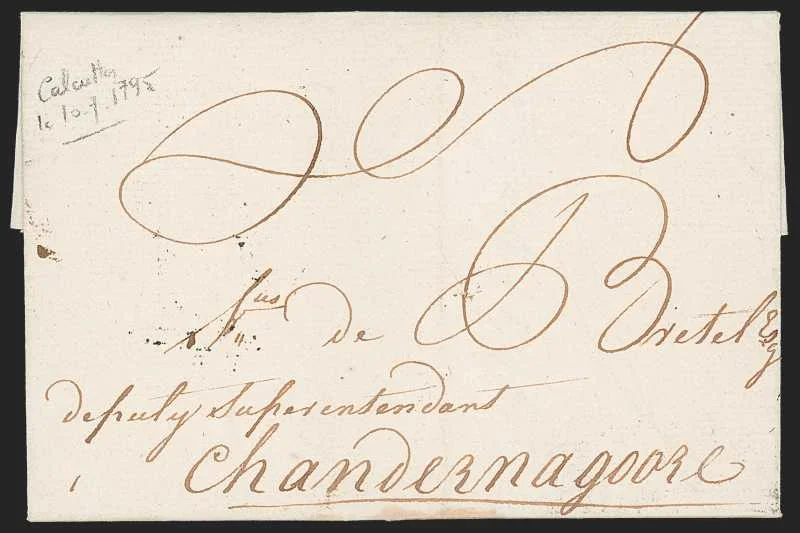 Calcutta
le 10.7.1795
fus de Bretel Esq
deputy Superentendant
Chandernagoore